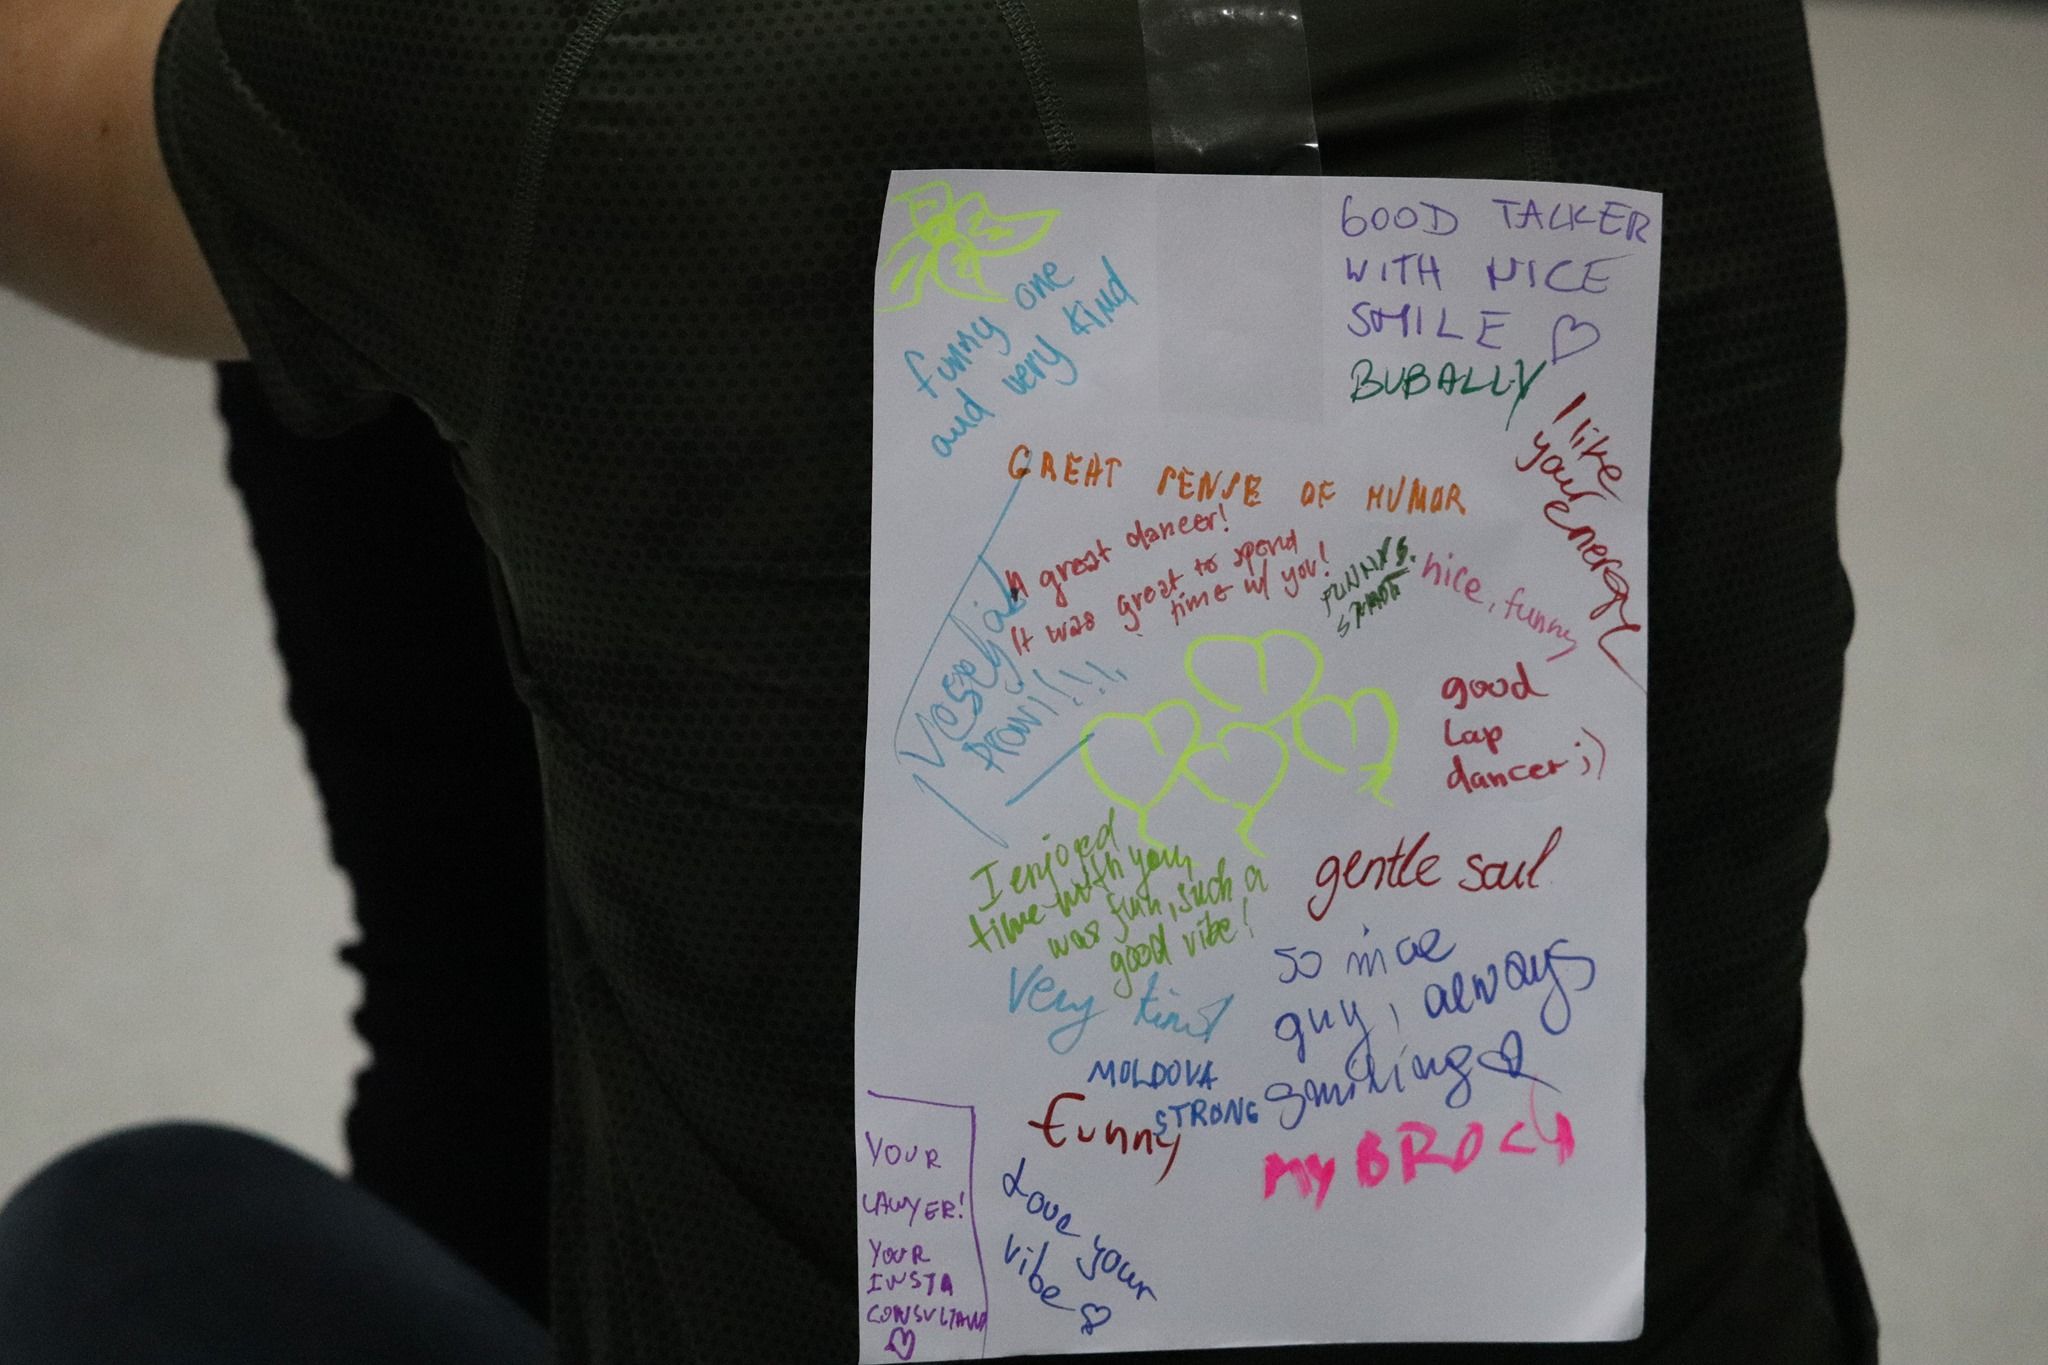 funny one
and very kind
GOOD TALKER
WITH NICE
SMILE
BUBALLY
I like
your
energy
GREAT SENSE OF HUMOR
A great dancer!
It was great to spend
time w/ you!
nice, funny
good
Lap
dancer ;)
I enjoyed
time with you,
was fun, such a
good vibe!
gentle soul
very kind
so nice
guy, always
smiling
MOLDOVA
STRONG
funny
My BRO
YOUR
LAWYER!
YOUR
INSTA
CONSULTANT
Love your
vibe